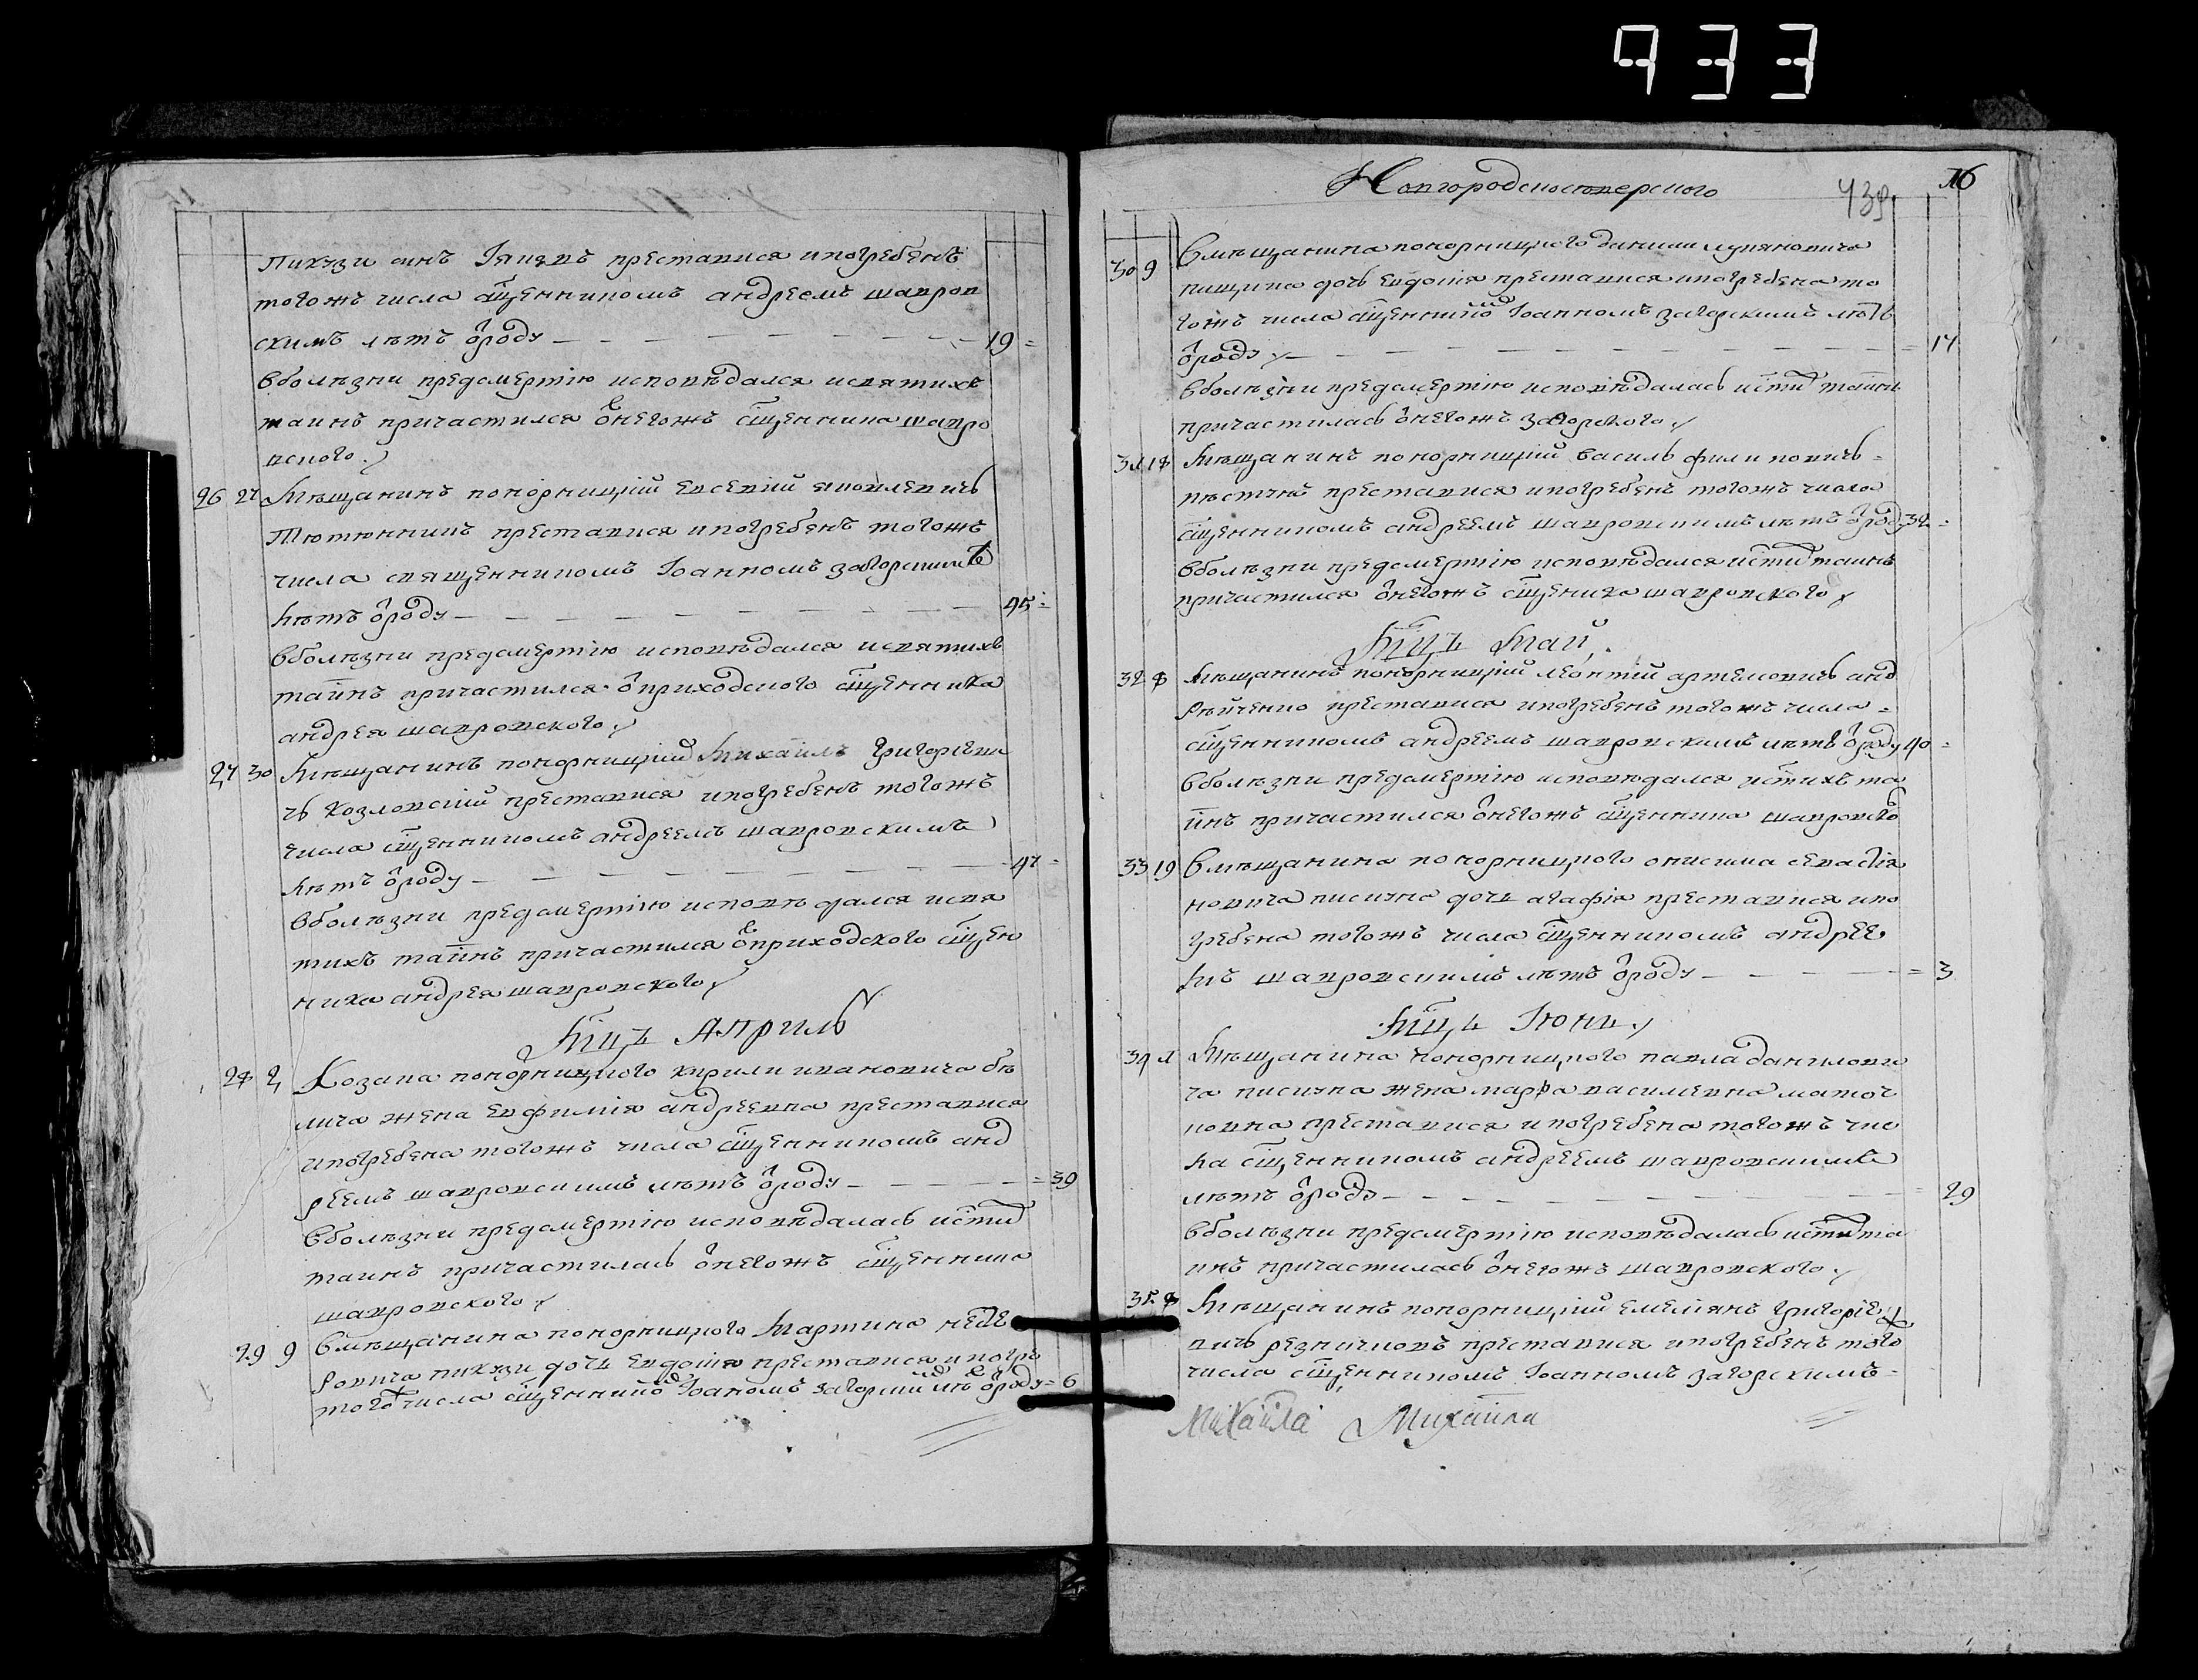 933
Пикузи синъ Іяковъ преставися и погребенъ
тогожъ числа сщенникомъ андреемъ шавров
скимъ лѣтъ ѿроду 19
Вболѣзни предсмертію исповѣдался исвятихъ
таинъ причастился ѿнегожъ сщенника шавро
вского
26 27 Мѣщанинъ понорницкій евсевій яковлевичъ
Тютюнникъ преставися и погребенъ тогожъ
числа священникомъ Іоанномъ загорскимъ
лѣтъ ѿроду 45
Вболѣзни предсмертію исповѣдался исвятихъ
тайнъ причастился ѿприходского сщенника
андрея шавровского
27 30 Мѣщанинъ понорницкій Михаилъ Григориеви
чъ козловскій преставися и погребенъ тогожъ
числа сщенникомъ андреемъ шавровскимъ
лѣтъ ѿроду 47
Вболѣзни предсмертію исповѣдался исвя
тихъ тайнъ причастился ѿприходского сщен
ника андрея шавровского
Мцъ Априль
28 2 Козака понорницкого кирили ивановича бѣ
лича жена евфимія андреевна преставися
ипогребена тогожъ числа сщенникомъ анд
реемъ шавровскимъ лѣтъ ѿроду 39
Вболѣзни предсмертію исповѣдалась истих
таинъ причастилась ѿнегожъ сщенника
шавровского
29 9 Вмѣщанина понорницкого Мартина неде
ровича пикузи дочь евдокія преставися и погре
тогож числа сщенником Іоаномъ загорским лѣ ѿроду 6
Новгородскосѣверского
439 16
30 9 Вмѣщанина понорницкого данили лукяновича
дочь евдокія преставися ипогребена то
гожъ числа сщенником Іоанномъ загорскимъ лѣтъ
ѿроду 17
Вболѣзни предсмертію исповѣдалась истих таинъ
причастилась ѿнегожъ загорского
31 18 Мѣщанинъ понорницкій василь филиповичъ
преставися ипогребенъ тогожъ числа
сщенникомъ андреемъ шавровскимъ лѣтъ ѿрод 32
Вболѣзни предсмертію исповѣдался истих таинъ
причастился ѿнегожъ сщеника шавровского
Мцъ Май
32 8 Мѣщанинъ понорницкій леонтій артемовичъ анд
рѣйченко преставися ипогребенъ тогожъ числа
сщенникомъ андреемъ шавровскимъ лѣтъ ѿроду 40
Вболѣзни предсмертію исповѣдался истихъ та
йнъ причастился ѿнегожъ сщенника шавровского
33 19 Вмѣщанина понорницкого онисима севастія
новича писична дочь агафія преставися ипо
гребена тогожъ числа сщенникомъ андрее
мъ шавровскимъ лѣтъ ѿроду 3
Мцъ Іюнь
34 1 Мѣщанина понорницкого павла данилови
ча писична жена марфа василевна
преставися и погребена тогожъ чис
ла сщенникомъ андреемъ шавровскимъ
лѣтъ ѿроду 29
Вболѣзни предсмертію исповѣдалась истих та
инъ причастилась ѿнегожъ шавровского
35 8 Мѣщанинъ понорницкій емелянъ григорие
вичъ резниковъ преставися и погребенъ того ж
числа сщенникомъ Іоанномъ загорскимъ
Михаила Михаила